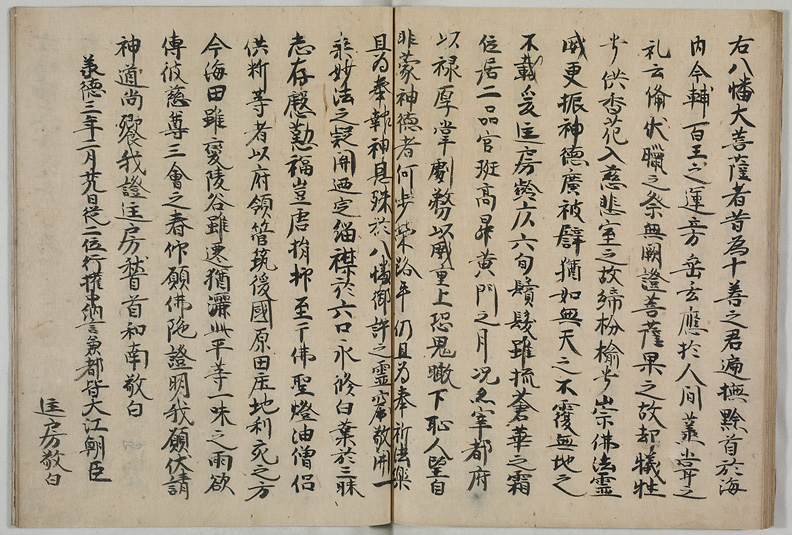 右八幡大菩薩者昔為十善之君遍撫黔首於海
内今輔百王之運旁垂玄應於人間蒸嘗之
礼云俻伏臘之祭無闕證菩薩果之故却犠牲
兮供香花入慈悲室之故締枌榆兮崇佛法霊
威更振神徳廣被譬猶如無天之不覆無地之
不載爰匡房齢広六旬鬢髪雖梳蒼華之霜
位居二品官班高昇黄門之月况亦宰都府
以禄厚掌劇務以威重上恐鬼瞰下恥人望自
非蒙神徳者何歩栄路乎仍且為奉祈法楽
且為奉報神恩殊於八幡御許之霊窟敬開一
乗妙法之凝開迺定緇襟於六口永修白業於三昧
志存慇懃福豈唐捐抑至于佛聖燈油僧侶
供新等者以府領管筑後國原田庄地利宛之方
今海田雖變陵谷雖遷猶灑此平等一味之雨欲
傳彼慈尊三會之春仰願佛陁證明我願伏請
神道尚饗我證匡房稽首和南敬白
承徳三年二月廿九日従二位行権中納言兼都督大江朝臣
匡房敬白